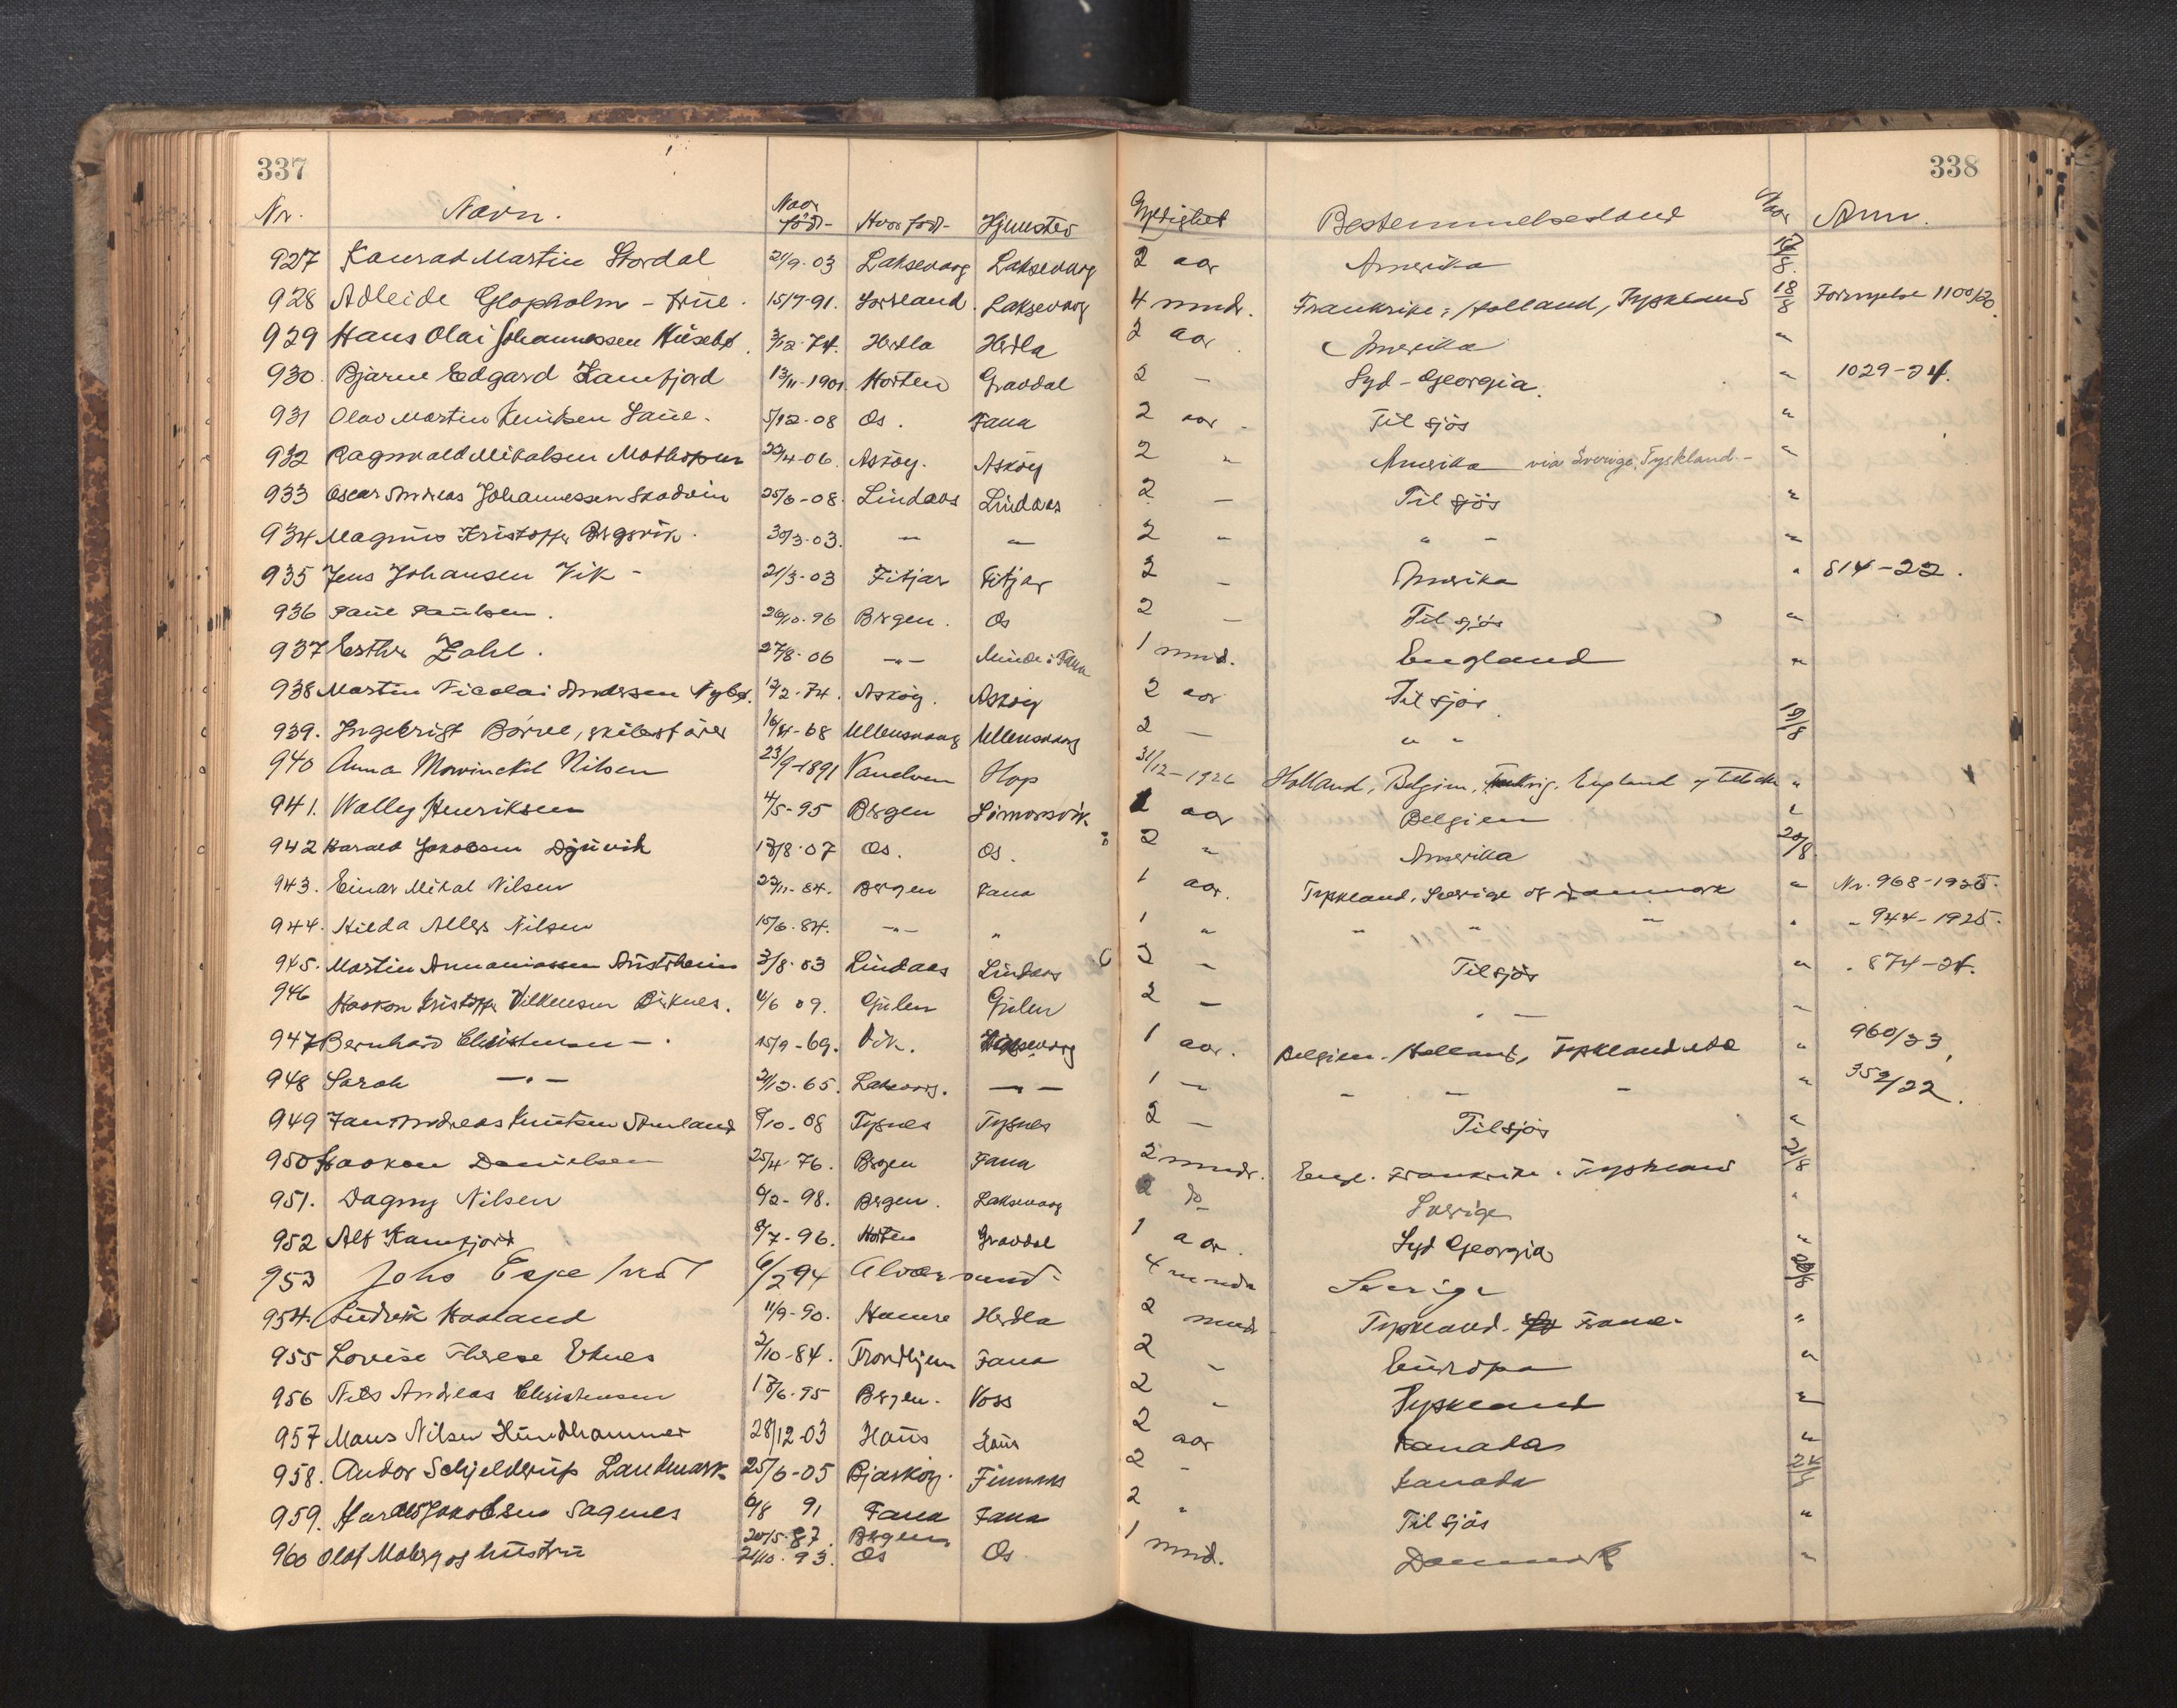 337 338
Nr. Navn. Naar föd- Hvor föd- Hjemsted Gyldighet Bestemmelsesland Naar Anm.
927 Konrad Martin Stordal 21/9-03 Laksevaag Laksevaag 2 aar Amerika /8.
928 Adleide Glopholm - frue. 15/7-91. Laksevaag 4 mnd. Frankrike, Holland, Tyskland 18/8 Fornyelse 1100/20.
929 Hans Olai Johannessen Husebø. 3/12-74. Herdla Herdla 2 aar Amerika "
930. Bjarne Edgard Kamfjord 13/11-1901 Horten Gravdal 2 - Syd-Georgia. " 1029-24.
931 Olav Martin Knutsen Laue. 5/12-08 Os. Fana 2 aar - Til sjös "
932 Ragnvald Mikalsen Mathopen 22/4-06. Asköy. Asköy 2 " Amerika via Sverige, Tyskland - "
933 Oscar Andreas Johannessen Skodvin 25/6-08. Lindaas Lindaas 2 - Til sjös "
934 Magnus Kristoffer Bergsvik. 30/3-03. - " 2 " " - "
935 Jens Johansen Vik - 21/3-03 Fitjar Fitjar 2 - Amerika " 814-22.
936 Paul Paulsen. 26/10-96 Bergen. Os 2 - Til sjös "
937 Esther Zahl. 27/8-06 -"- Minde i Fana 1 mnd. England "
938 Martin Nicolai Andersen Nybø. 12/2-74. Asköy. Asköy 2 aar Til sjös.
939. Ingebrigt Børve, skibsförer 16/4-68 Ullensvang Ullensvang 2 - " " 19/8
940 Anna Mowinckel Nilsen 23/9-1891 Vanelven Hop 31/12-1926 Holland, Belgien, Frankrig, England "
941. Wally Henriksen 4/5-95 Bergen Simonsvik aar Belgien "
942 Harald Jakobsen Djuvik 13/8-07 Os. Os. 2 " Amerika 20/8.
943. Einar Mikal Nilsen 22/11-84. Bergen Fana 1 aar. Tyskland, Sverige og Danmark " Nr. 968-1925.
944. Hilda Allers Nilsen 15/6-84. -"- " 1 " " " " " " 944-1925.
945. Martin Annaniassen Austrheim 3/8-03 Lindaas Lindaas 2 - Til sjös " " 874-24.
946 Haakon Kristoffer Vilhelmsen Birknes. 4/6 09. Gulen Gulen 2 - " - -
947 Bernhard Christensen -. 15/9-69. Vik. Laksevaag 1 aar. Belgien - Holland, Tyskland " 960/23.
948 Sarah -"- 2/12-65. Laksevaag. -"- 1 - - - - " 352/22.
949 Jan Andreas Knutsen 9/10-08 Tysnes Tysnes 2 - Til sjös "
950 Haakon Danielsen 25/4-76. Bergen Fana 2 mndr. Engl. Frankrike. Tyskland 21/8
951. Dagny Nilsen 6/2-98. Bergen. Laksevaag 2 do Sverige "
952 Alf Kamfjord 8/7-96. Horten Gravdal 1 aar. Syd Georgia "
953 Johs Espe 6/2 94 Alversund - 4 mndr Sverige
954. Ludvik Haaland 11/9-90. Hamre Herdla 2 mndr Tyskland - "
955 Lovise Therese Eknes 2/10-84. Trondhjem Fana 2 - Europa "
956 Nils Andreas Christensen 13/6-95 Bergen. Voss 2 " Tyskland "
957 Mons Nilsen Hundhammer 28/12-03 Haus Haus 2 aar Kanada "
958. Andor Schjelderup Landmark 25/6-05 Bjarköy. 2 - Kanada
959. Harald Jakobsen Sagnes 6/8 91 Fana Fana 2 " Til sjös "
960 Olaf Moberg og hustru 20/5-87. Bergen 1 mnd. Danmark "
21/10-93. Os Os